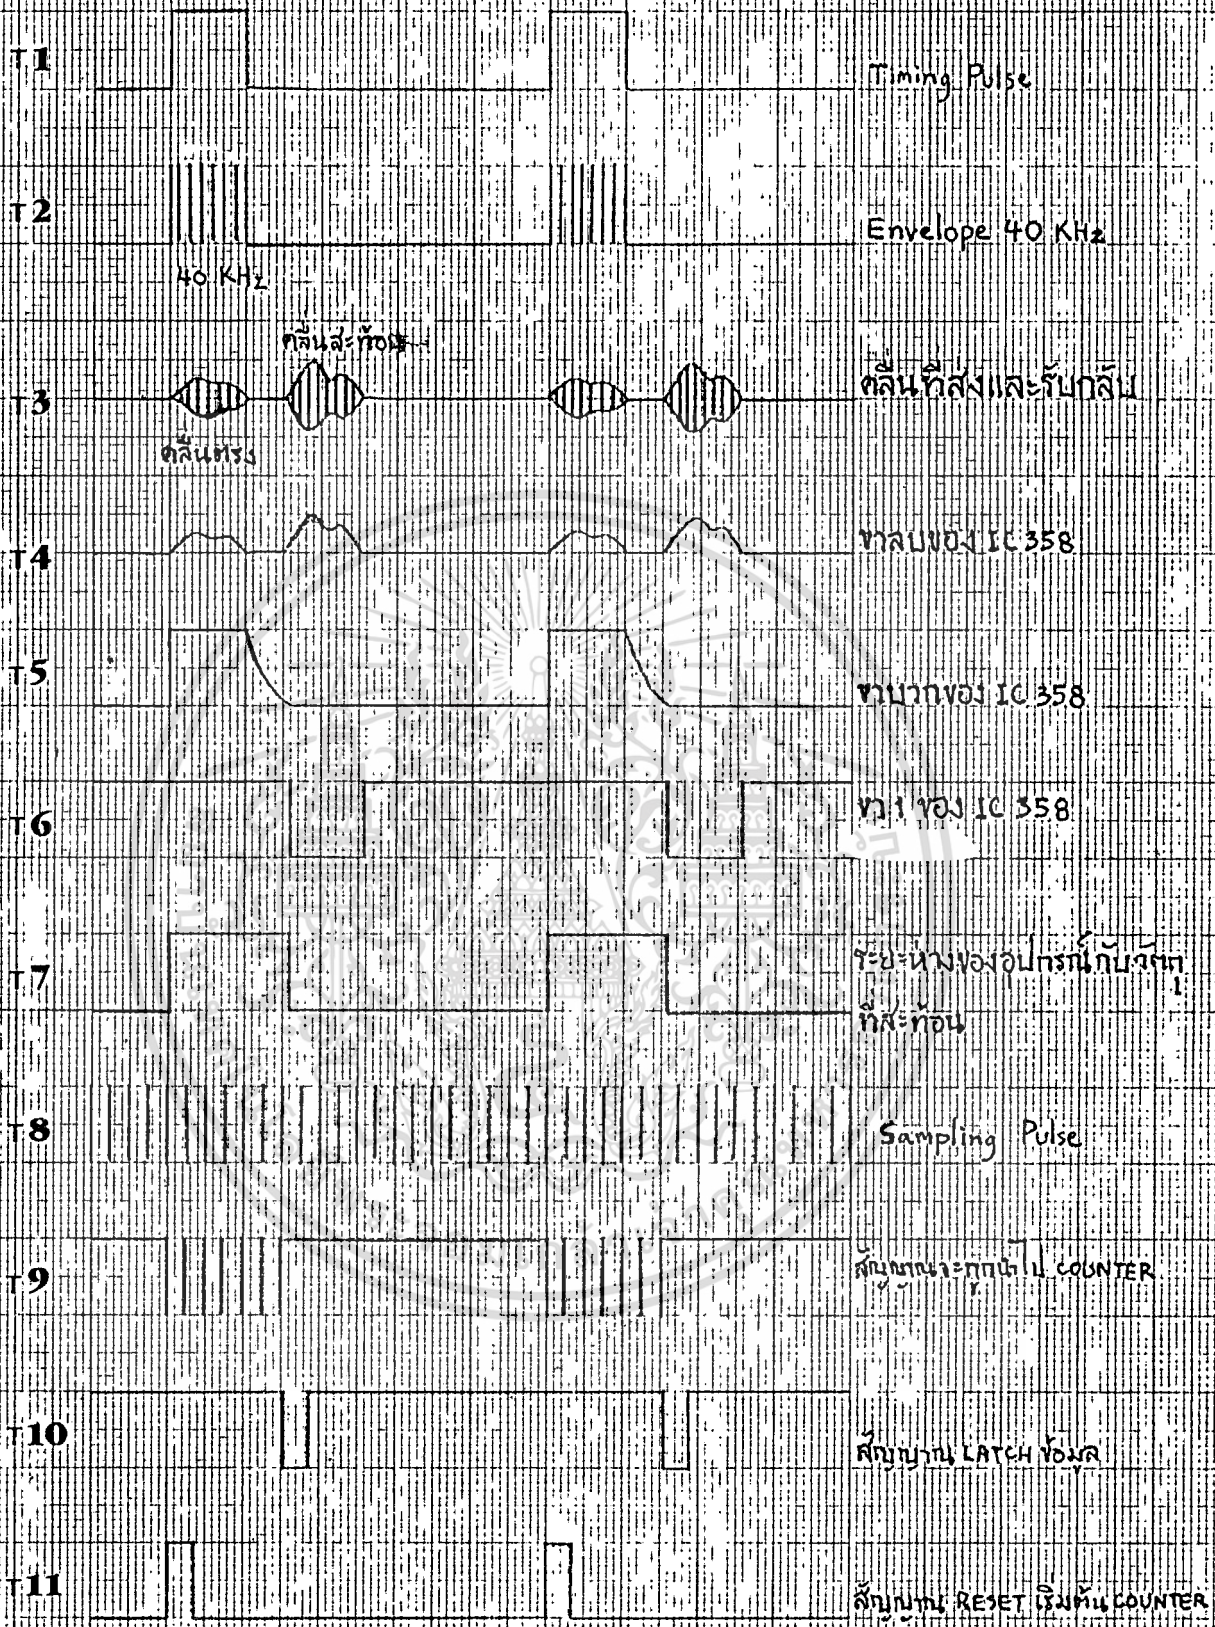 T1
Timing Pulse
T2
Envelope 40 KHz
40 KHz
คลื่นสะท้อน
T3
คลื่นที่ส่งและรับกลับ
คลื่นตรง
T4
ขาลบของ IC 358
T5
ขาบวกของ IC 358
T6
ขา 1 ของ IC 358
T7
ระยะห่างของอุปกรณ์กับวัตถุ
ที่สะท้อน
T8
Sampling Pulse
T9
สัญญาณจะถูกนำไป COUNTER
T10
สัญญาณ LATCH ข้อมูล
T11
สัญญาณ RESET เริ่มต้น COUNTER